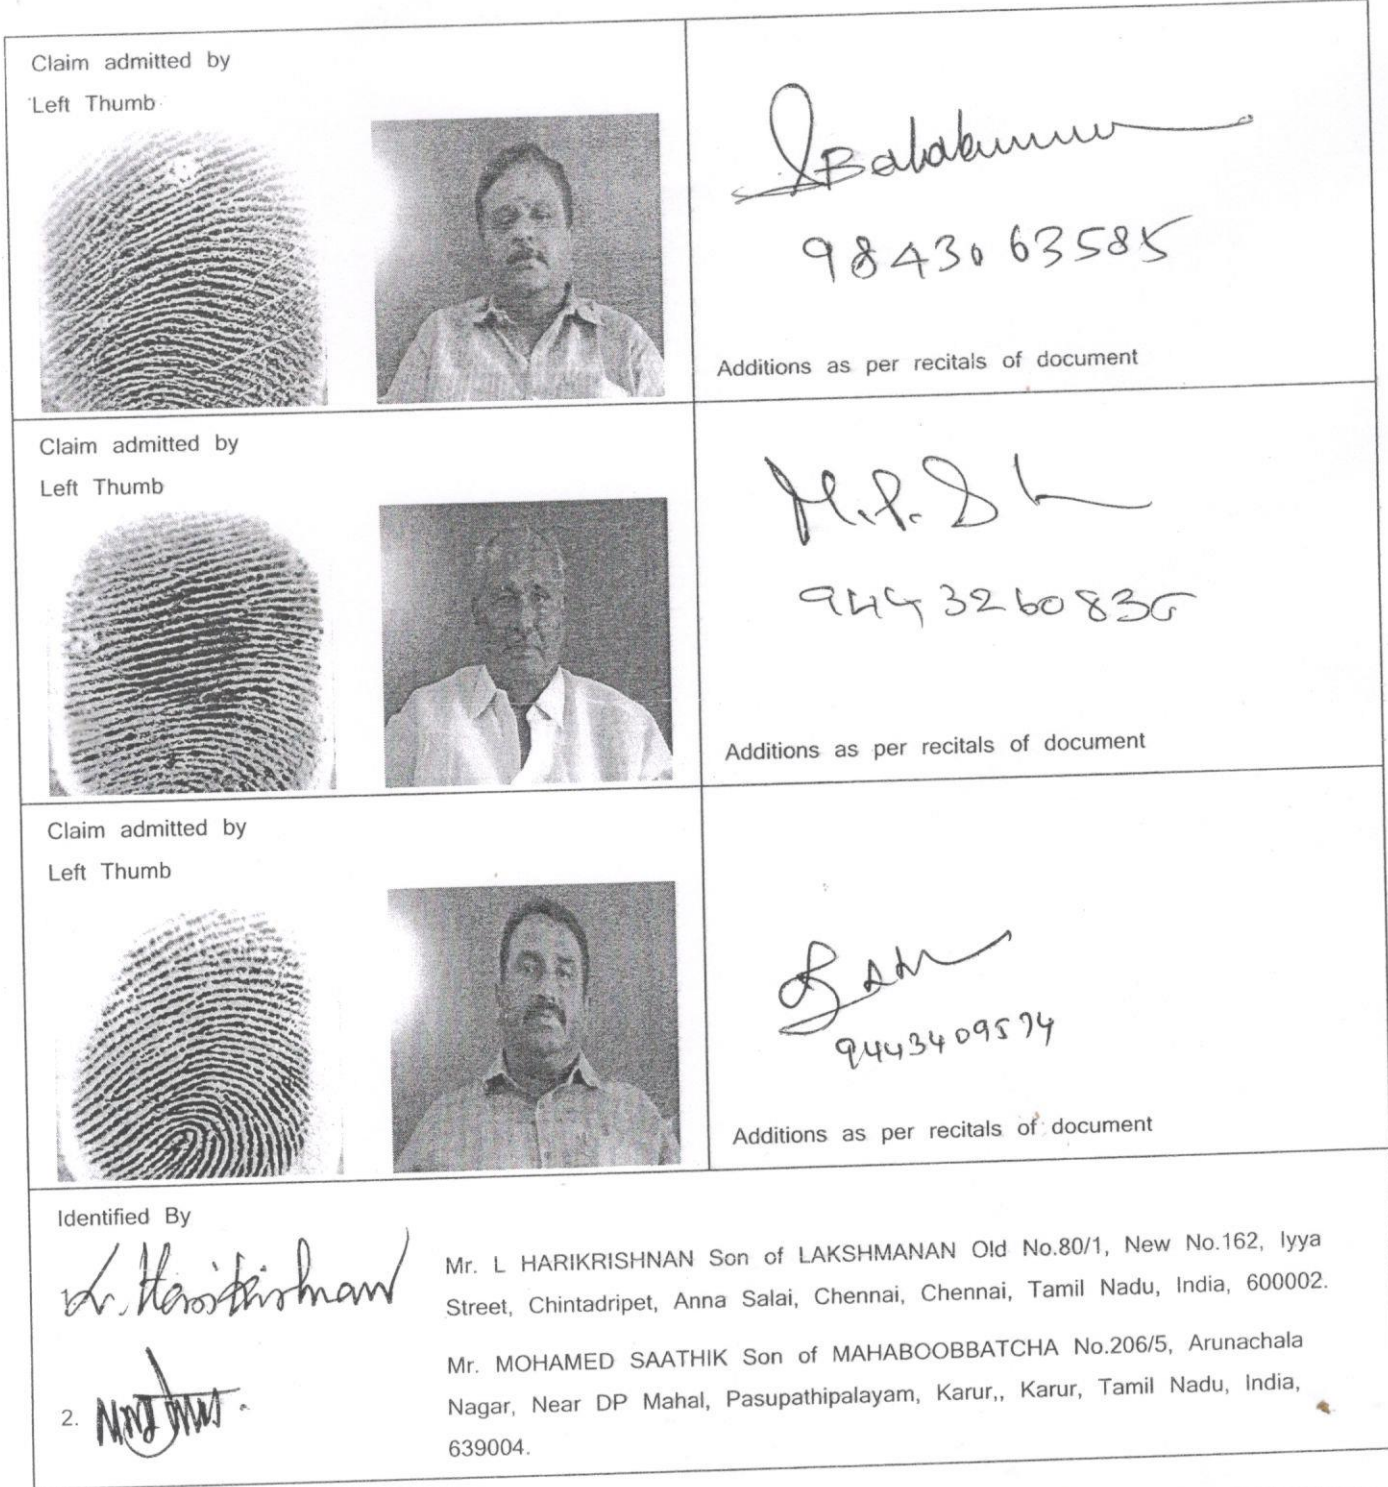 Claim admitted by
Left Thumb
Balakumar
98430 63585
Additions as per recitals of document
Claim admitted by
Left Thumb
M.P.
Additions as per recitals of document
Claim admitted by
Left Thumb
9443409574
Additions as per recitals of document
Identified By
L. Harikrishnan
Mr. L HARIKRISHNAN Son of LAKSHMANAN Old No.80/1, New No.162, Iyya
Street, Chintadripet, Anna Salai, Chennai, Chennai, Tamil Nadu, India, 600002.
2.
Mr. MOHAMED SAATHIK Son of MAHABOOBBATCHA No.206/5, Arunachala
Nagar, Near DP Mahal, Pasupathipalayam, Karur,, Karur, Tamil Nadu, India,
639004.